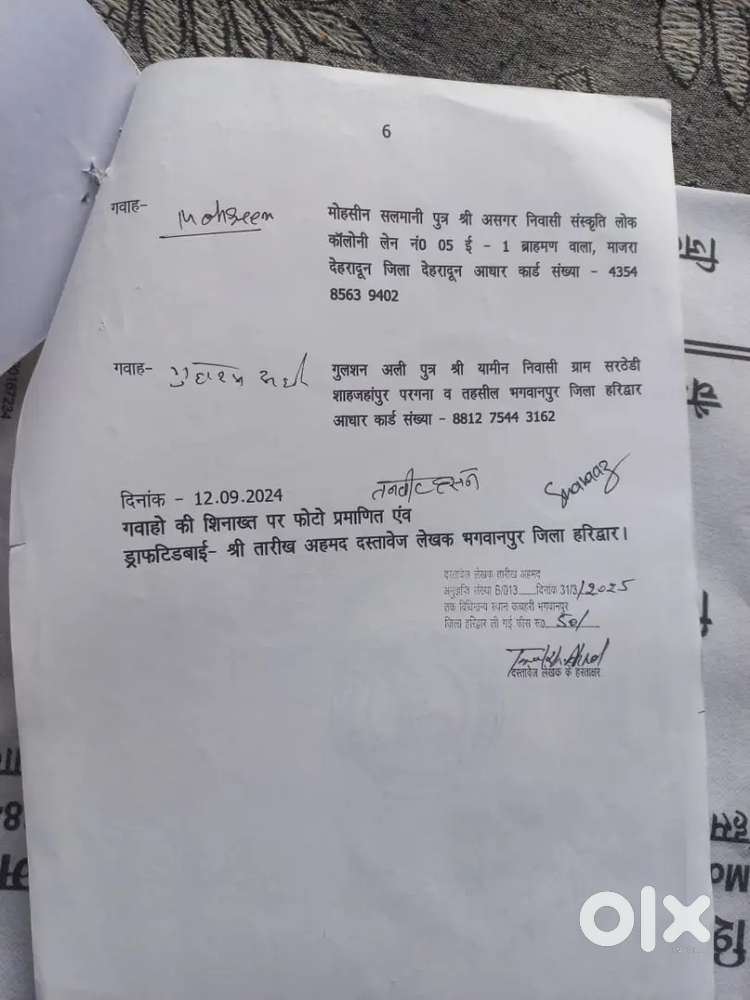 6
गवाह- Mohseen मोहसीन सलमानी पुत्र श्री असगर निवासी संस्कृति लोक
कॉलोनी लेन नं0 05 ई - 1 ब्राहमण वाला, माजरा
देहरादून जिला देहरादून आधार कार्ड संख्या - 4354
8563 9402
गवाह- गुलशन अली पुत्र श्री यामीन निवासी ग्राम सरठेडी
शाहजहांपुर परगना व तहसील भगवानपुर जिला हरिद्वार
आधार कार्ड संख्या - 8812 7544 3162
दिनांक - 12.09.2024
गवाहो की शिनाख्त पर फोटो प्रमाणित एंव
ड्राफटिडबाई- श्री तारीख अहमद दस्तावेज लेखक भगवानपुर जिला हरिद्वार।
दस्तावेज लेखक तारीख अहमद
अनुज्ञप्ति संख्या 6/013 दिनांक 31/3/2025
तक विधिमान्य स्थान कचहरी भगवानपुर
जिला हरिद्वार ली गई फीस रू0 50/
दस्तावेज लेखक के हस्ताक्षर
olx